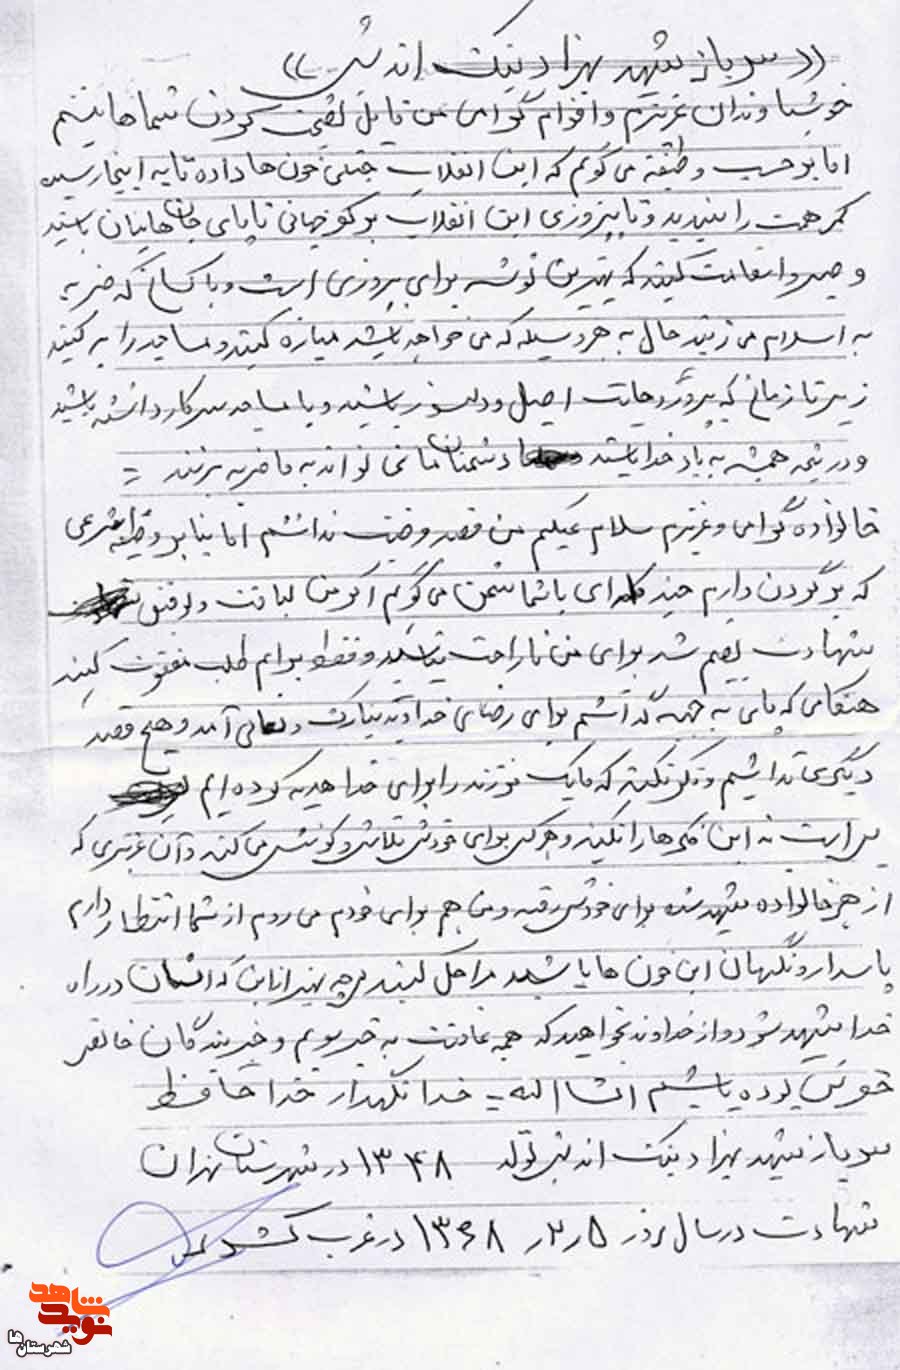 ((سرباز شهید بهزاد نیک اندیش))
خوشاوندان عزیزم و اقوام گرامی من قابل نصیحت کردن شماها نیستم
اما بر حسب وظیفه می گویم که این انقلاب خیلی خون ها داده تا به اینجا رسیده
کمر همت را ببندید و تا پیروزی این انقلاب بر کفر جهانی تا پای جان هایتان باستید
و صبر و استقامت کنید که بهترین توشه برای پیروزی است و با کسانی که ضربه
به اسلام می زنند حال به هر وسیله که می خواهد باشد مبارزه کنید و مساجد را پر کنید
زیر تا زمانی که پیرو روحانیت اصیل و دلسوز باشید و با مساجد سرکار داشته باشید
و در نتیجه همیشه به یاد خدا باشید دشمنان ما نمی تواند به ما ضربه بزنند =
خانواده گرامی و عزیزم سلام علیکم من قصد وصیت نداشتم اما بنا بر وظیفه شرعی
که بر گردن دارم چند کلمه ای با شما سخن می گویم اگر من لیاقت و توفیق
شهادت نصیبم شد برای من ناراحت نباشید و فقط برایم طلب مغفرت کنید
هنگامی که پای به جبهه گذاشتم برای رضای خداوند تبارک و تعالی آمد و هیچ قصد
دیگری نداشتم و فکر نکنید که ما یک فرزند را برای خدا هدیه کرده ایم
بس است نه این فکرها را نکنید و هر کس برای خودش تلاش و کوشش می کند و آن عزیزی که
از هر خانواده شهید شده برای خودش رفته و من هم برای خودم می روم از شما انتظار دارم
پاسدار و نگهبان این خون ها باشید مراحل کنید پس چه بهتر از این که انسان در راه
خدا شهید شود و از خداوند بخواهید که همه عاقبت به خیر شویم و جز بندگان خالص
خودش بوده باشیم انشاالله = خدا نگهدار خدا حافظ
سرباز شهید بهزاد نیک اندیش تولد ۱۳۴۸ در شهرستان تهران
شهادت در سال روز ۵ ر ۳ ر ۱۳۶۸ در غرب کشور
نوید شاهد
شهرستان‌ها